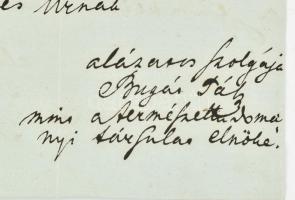 és Urnak
alázatos szolgája
Bugát Pál
mint a természettudomá
nyi társulat elnöke.